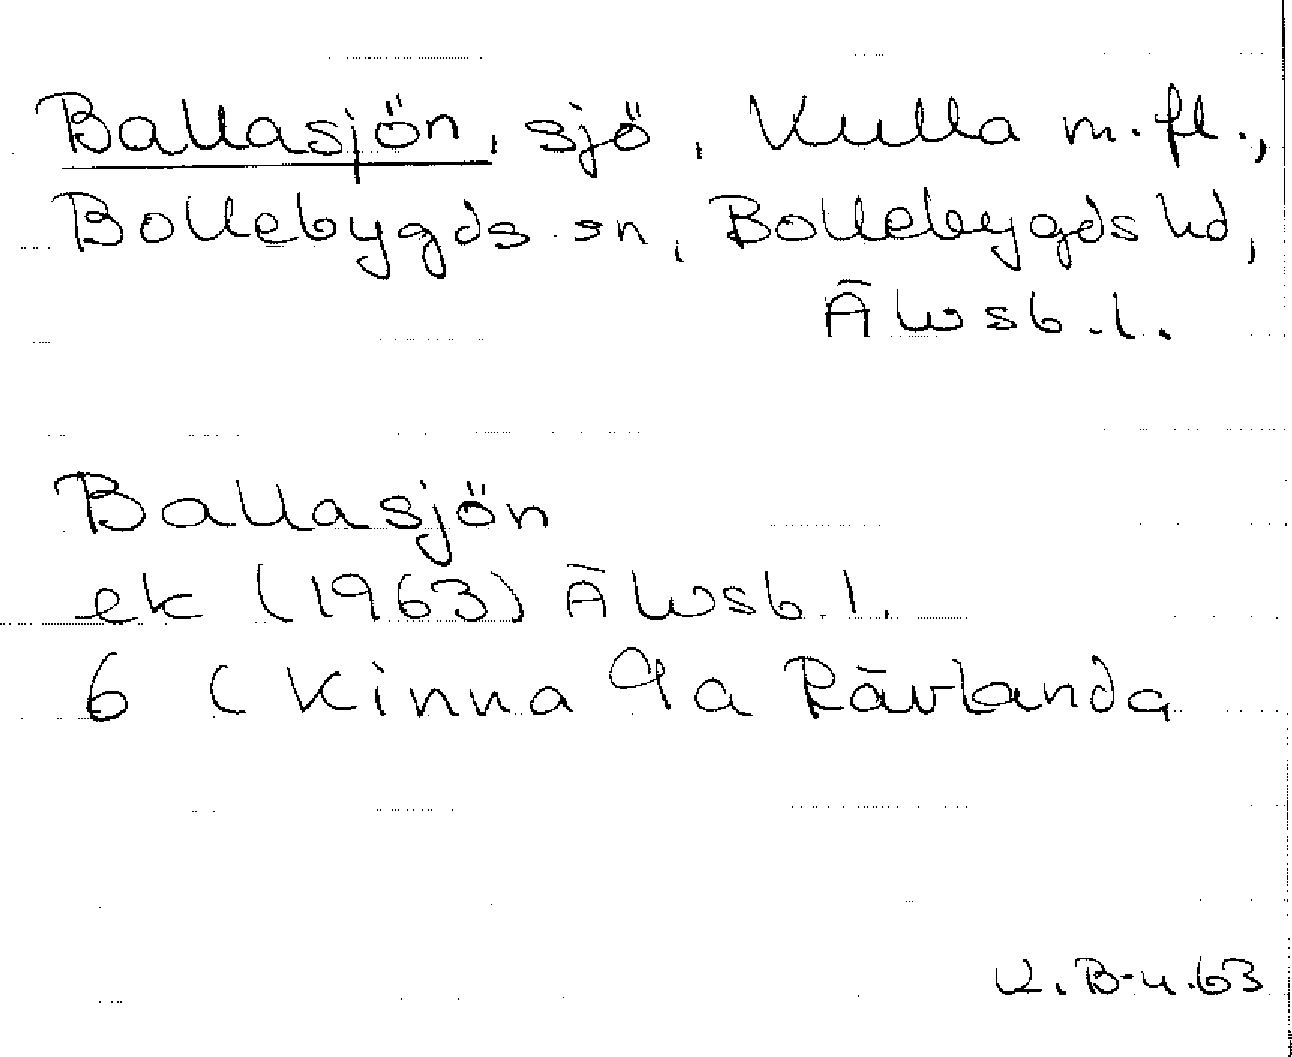 Ballasjön, sjö, Kulla m.fl.,
Bollebygds sn, Bollebygds hd,
Älvsb.l.
Ballasjön
ek (1963) Älvsb.l.
6 ( Kinna 9a Rävlanda
K.B-u.63